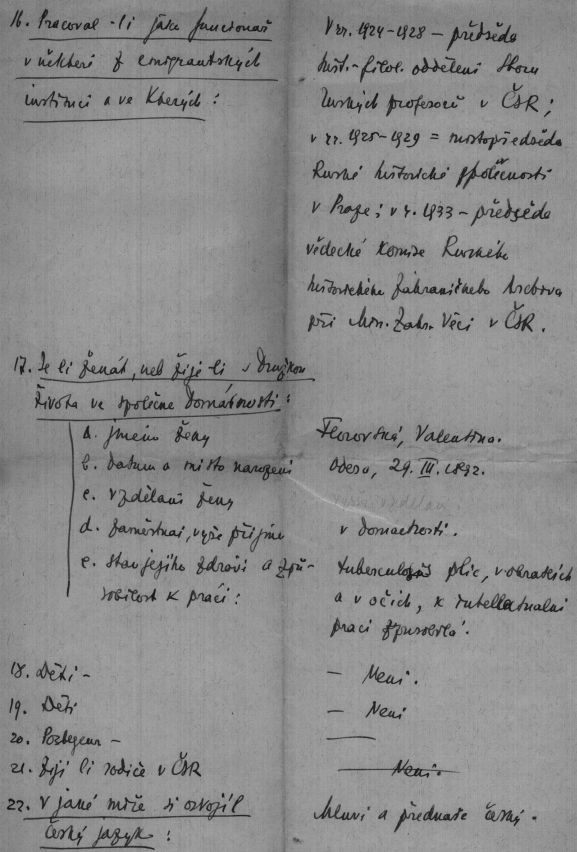 16. Pracoval-li jako funcionář
v některi z emigrantských
instituci a ve kterých:
V rr. 1924-1928 – předseda
hist.-filol. odděleni Sboru
Ruských profesorů v ČSR;
v rr. 1925-1929 = mistopředseda
Ruské historické společnosti
v Praze; v r. 1933 – předseda
vědecké komise Ruského
historického zahraničneho Archiva
při Min. Zahr. Věci v ČSR.
17. Je li ženát, neb žije-li s družkou
života ve společne domácnosti:
a. jmeno ženy
Florovská, Valentina.
b. datum a misto narozeni
Odesa, 29. III. 1892.
c. vzdělani ženy
vyšší vzdělani
d. zaměstnai, vyše přijmu
v domacnosti.
e. stav jejiho zdravi a způ-
sobilost k praci:
tuberculosis plic, v obratlich
a v očich, k intellektualni
praci zpusobila.
18. Děti –
– Neni.
19. Děti
– Neni
20.
21. žijí li rodiče v ČSR
– Neni.
22. v jaké miře si osvojil
český jazyk:
Mluvi a přednaše česky.